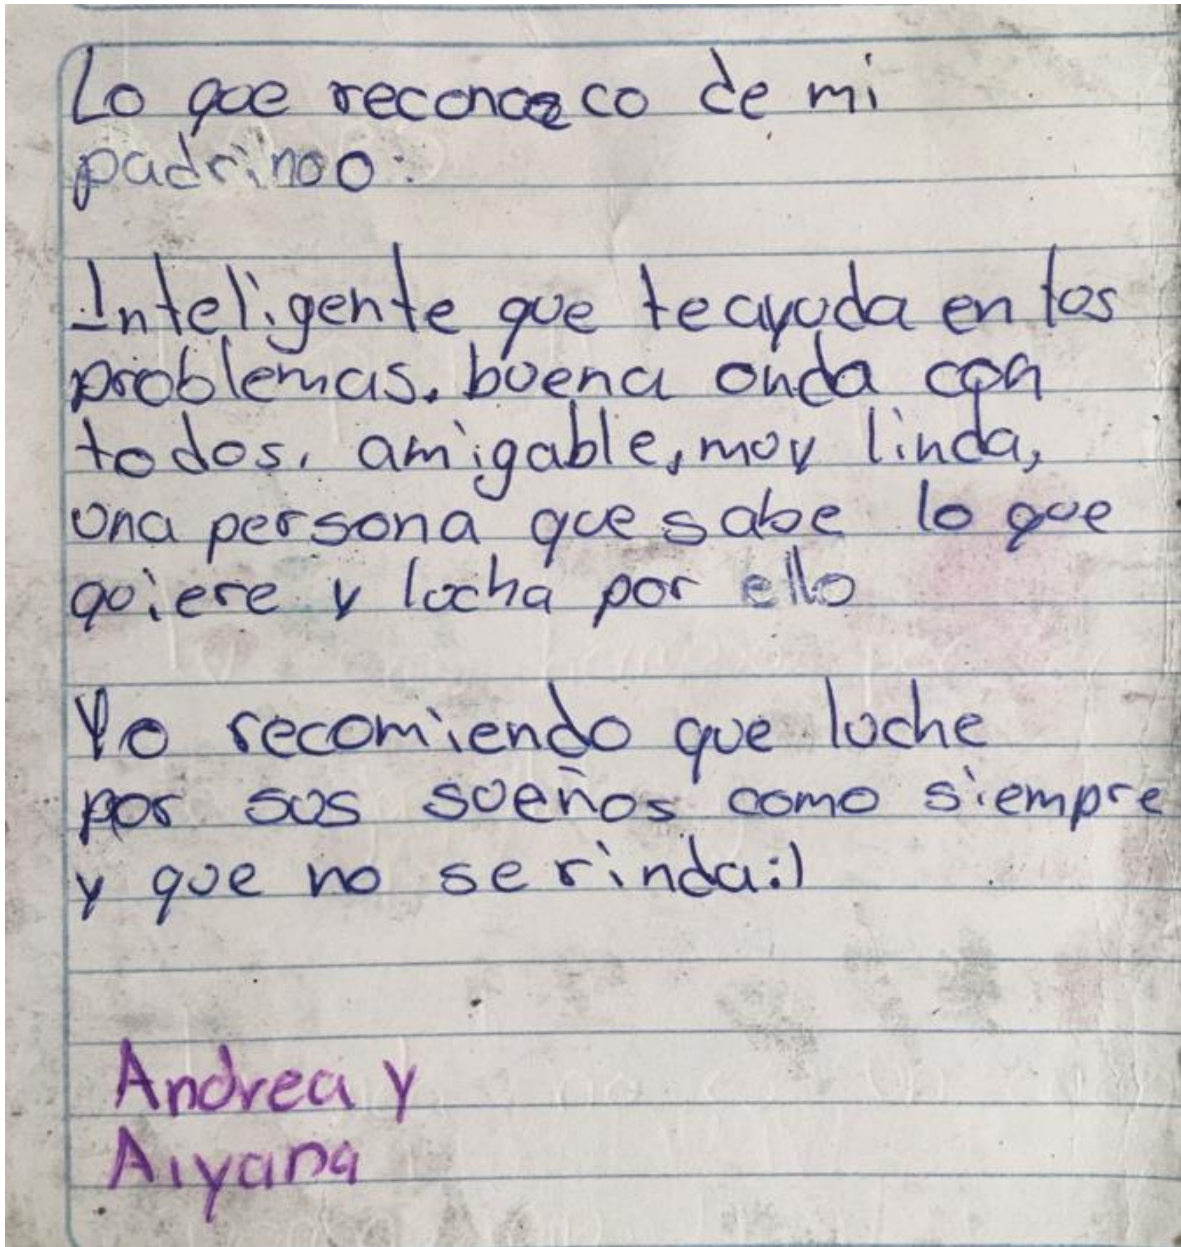 Lo que reconozco de mi
padrinoo:
Inteligente que te ayuda en los
problemas. buena onda con
todos, amigable, muy linda,
una persona que sabe lo que
quiere y lucha por ello
Yo recomiendo que luche
por sus sueños como siempre
y que no se rinda:)
Andrea y
Aiyana